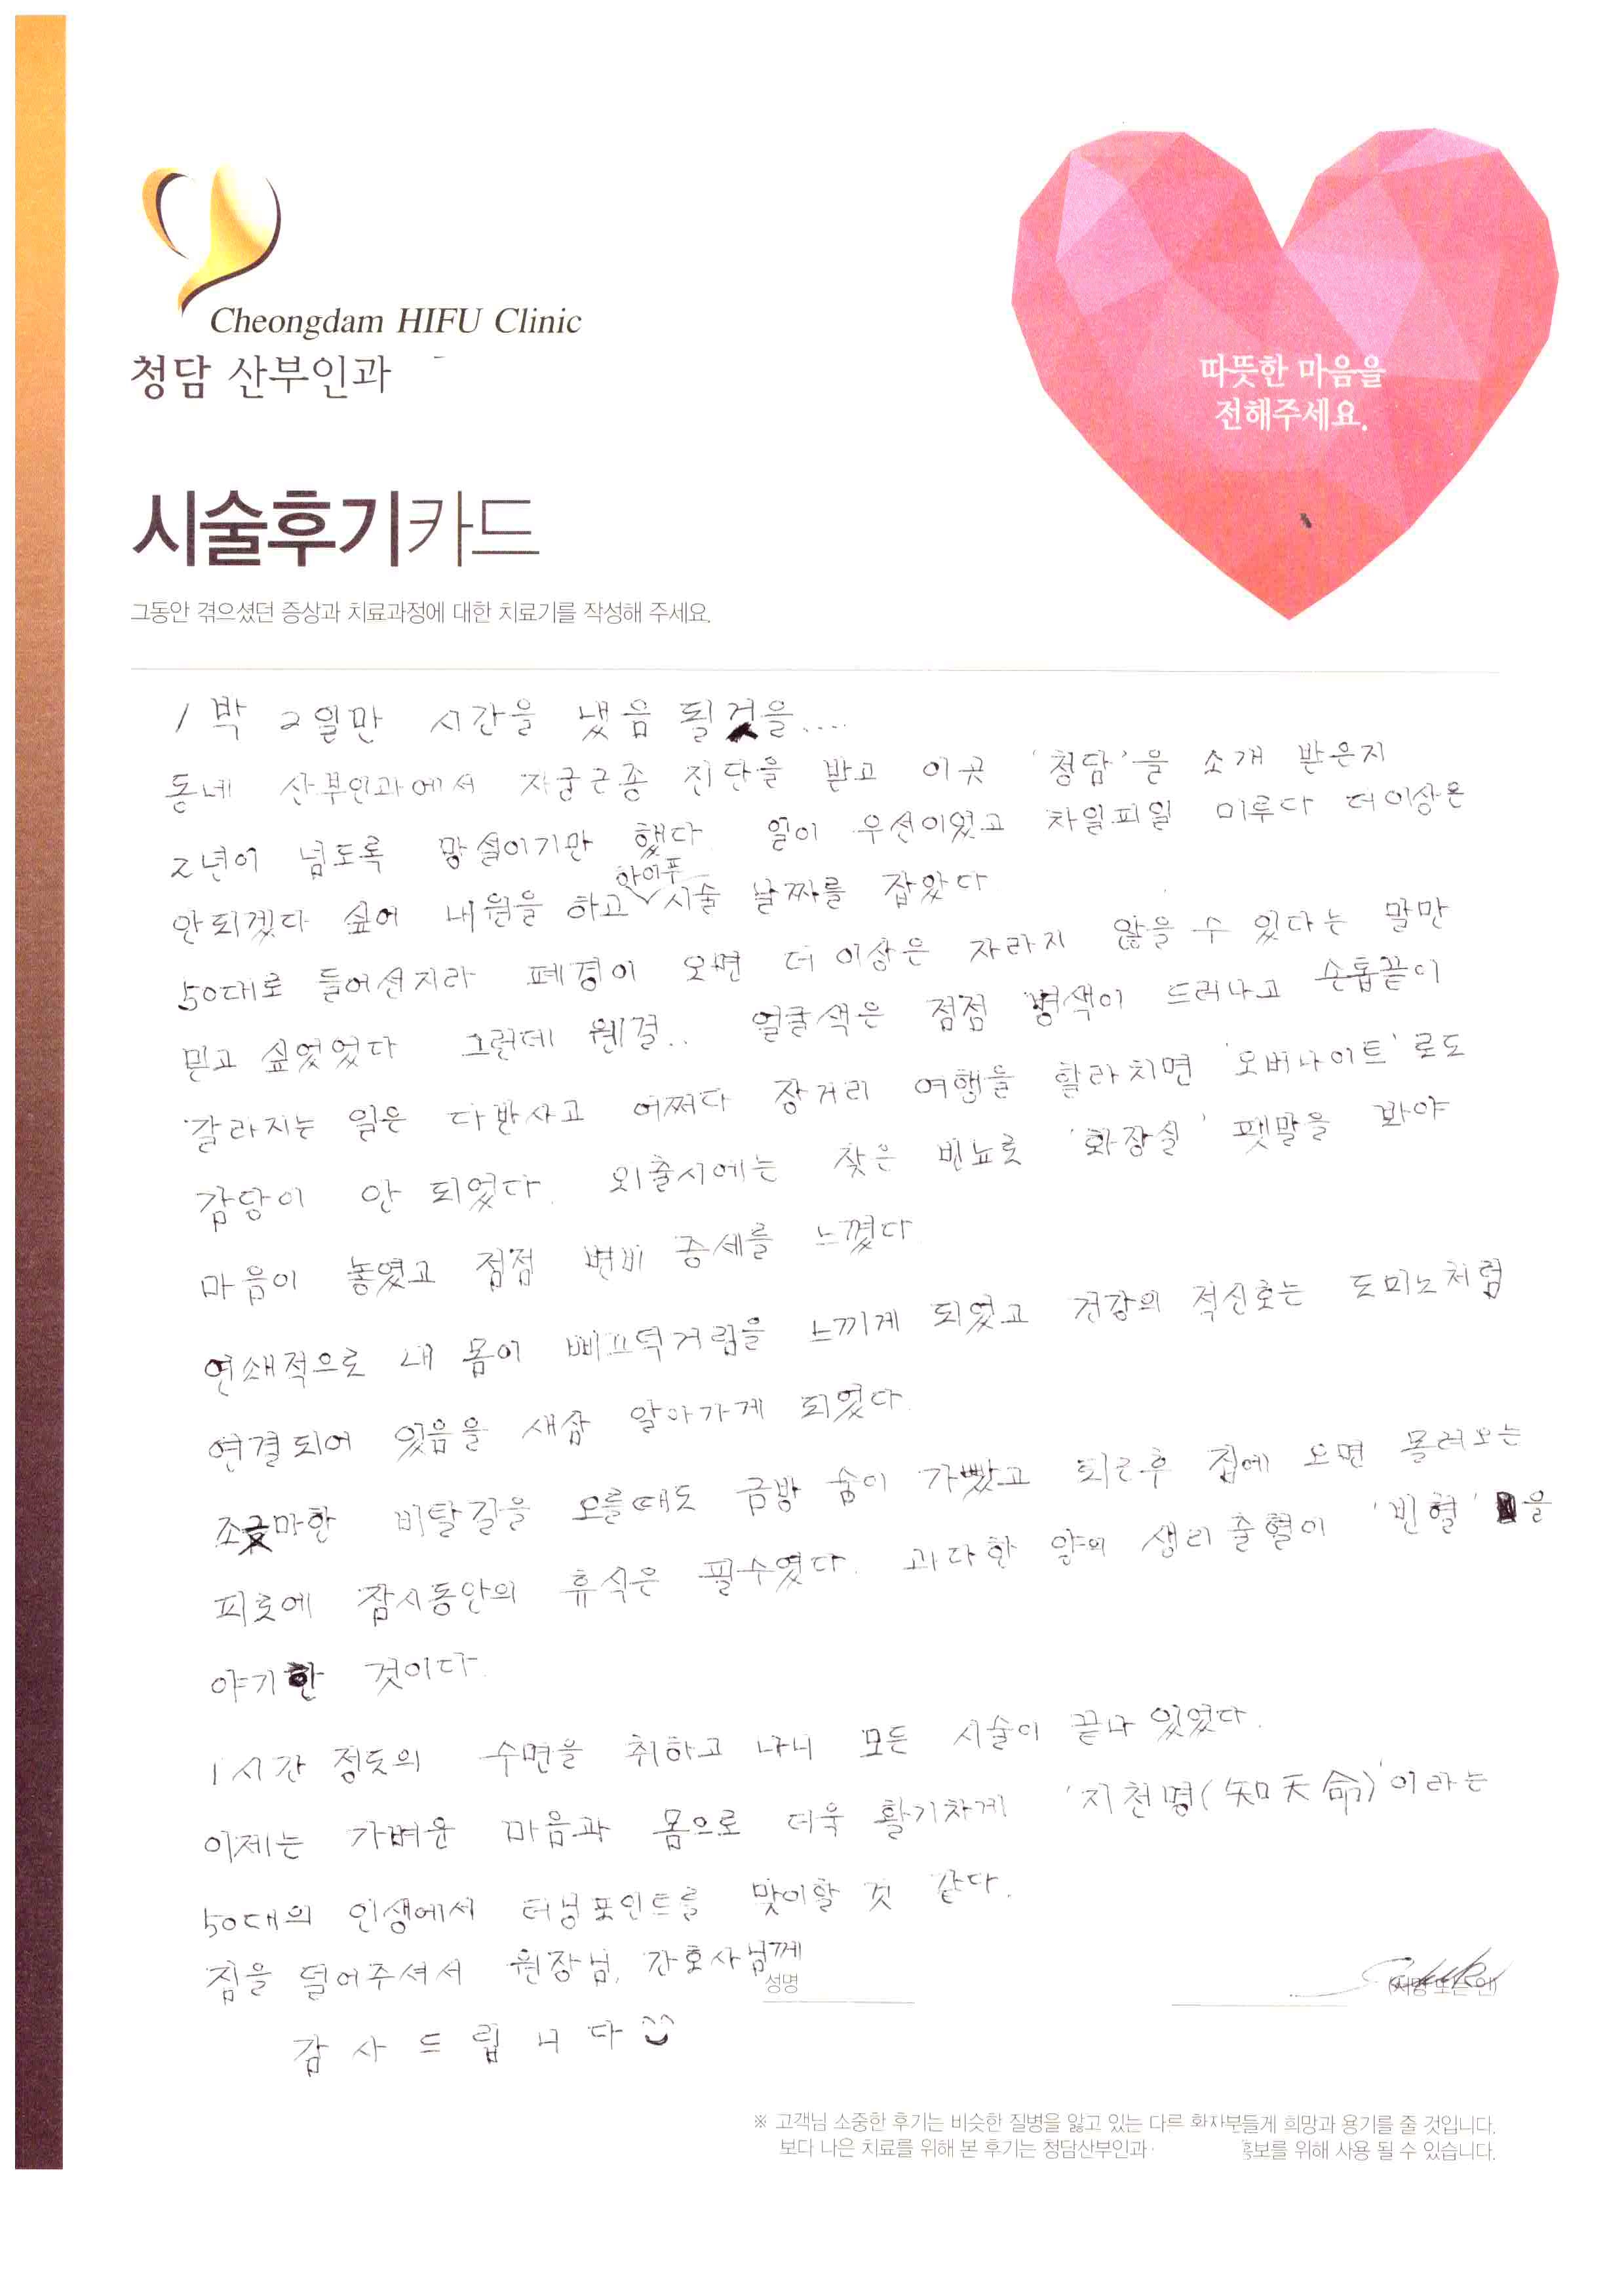 Cheongdam HIFU Clinic
청담 산부인과
따뜻한 마음을
전해주세요.
시술후기카드
그동안 겪으셨던 증상과 치료과정에 대한 치료기를 작성해 주세요.
1박 2일만 시간을 냈음 될것을....
동네 산부인과에서 자궁근종 진단을 받고 이곳 '청담'을 소개 받은지
2년이 넘도록 망설이기만 했다. 일이 우선이었고 차일피일 미루다 더이상은
안되겠다 싶어 내원을 하고 하이푸 시술 날짜를 잡았다
50대로 들어선지라 폐경이 오면 더 이상은 자라지 않을 수 있다는 말만
믿고 싶었었다 그런데 웬걸.. 얼굴색은 점점 병색이 드러나고 손톱끝이
갈라지는 일은 다반사고 어쩌다 장거리 여행을 할라치면 '오버나이트'로도
감당이 안 되었다. 외출시에는 잦은 빈뇨로 '화장실' 팻말을 봐야
마음이 놓였고 점점 변비 증세를 느꼈다
연쇄적으로 내 몸이 삐끄덕거림을 느끼게 되었고 건강의 적신호는 도미노처럼
연결되어 있음을 새삼 알아가게 되었다.
조금마한 비탈길을 오를때도 금방 숨이 가빴고 퇴근후 집에 오면 몰려오는
피로에 잠시동안의 휴식은 필수였다. 과다한 양의 생리 출혈이 '빈혈'을
야기한 것이다.
1시간 정도의 수면을 취하고 나니 모든 시술이 끝나 있었다.
이제는 가벼운 마음과 몸으로 더욱 활기차게 '지천명(知天命)'이라는
50대의 인생에서 터닝포인트를 맞이할 것 같다.
짐을 덜어주셔서 원장님, 간호사님께
성명 (서명 또는 인)
감사드립니다
※ 고객님 소중한 후기는 비슷한 질병을 앓고 있는 다른 환자분들게 희망과 용기를 줄 것입니다.
보다 나은 치료를 위해 본 후기는 청담산부인과 홍보를 위해 사용 될 수 있습니다.